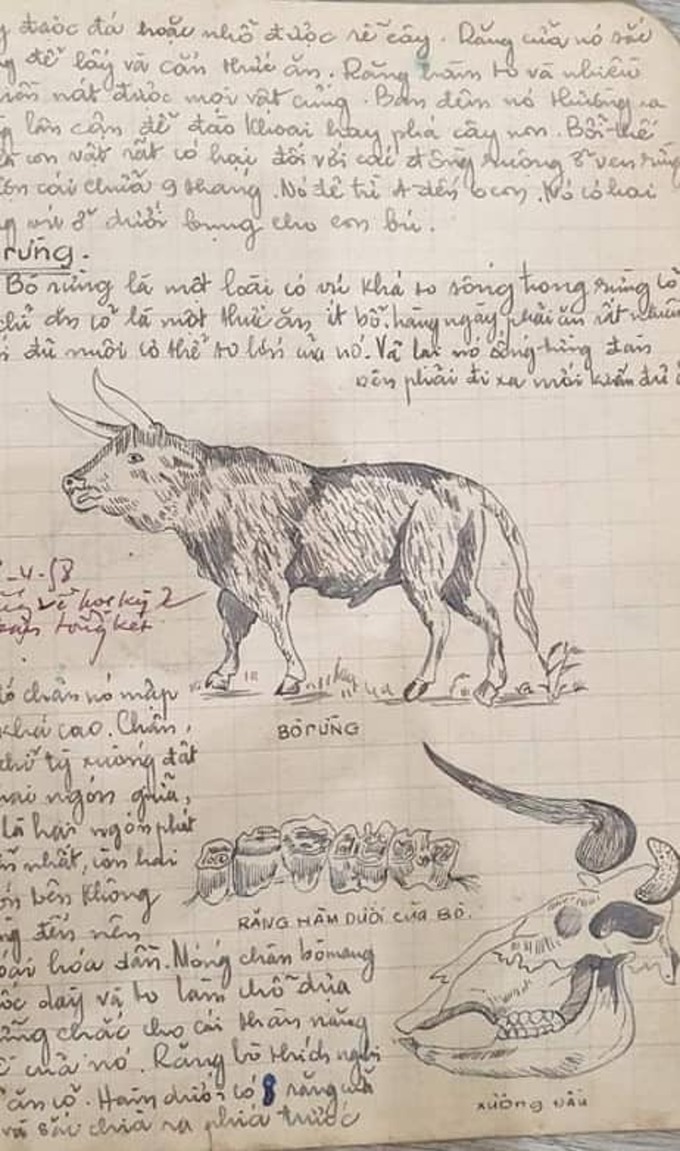 được đá hoặc nhổ được rễ cây. Răng của nó sắc
để lấy và cắn thức ăn. Răng hàm to và nhiều
nát được mọi vật cứng. Ban đêm nó thường ra
lân cận để đào khoai hay phá cây non. Bởi thế
là con vật rất có hại đối với các đồng ruộng ở ven rừng
cái chửa 9 tháng. Nó đẻ từ 4 đến con. Nó có hai
vú ở dưới bụng cho con bú.
rừng.
Bò rừng là một loài có vú khá to sống trong rừng
chỉ ăn cỏ là một thức ăn ít bổ, hàng ngày phải ăn rất nhiều
đủ nuôi cơ thể to lớn của nó. Vả lại nó sống từng đàn
nên phải đi xa mới kiếm đủ
-4-58
vẽ học kỳ 2
tổng kết
chân nó mập
khá cao. Chân,
tỳ xuống đất
hai ngón giữa,
là hai ngón phát
nhất, còn hai
bên không
đến nên
hóa dần. Móng chân bò mang
dày và to làm chỗ dựa
chắc cho cái thân nặng
của nó. Răng bò thích nghi
ăn cỏ. Hàm dưới có 8 răng cửa
và sắc chìa ra phía trước
BÒ RỪNG
RĂNG HÀM DƯỚI CỦA BÒ.
XƯƠNG ĐẦU